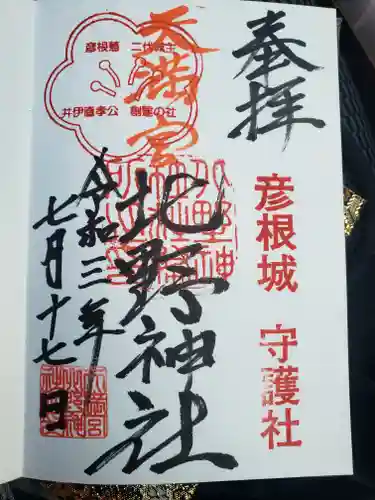 奉拝
彦根城 守護社
天満宮
彦根藩 二代城主
井伊直孝公 創建の社
北野神社
令和三年
七月十七日